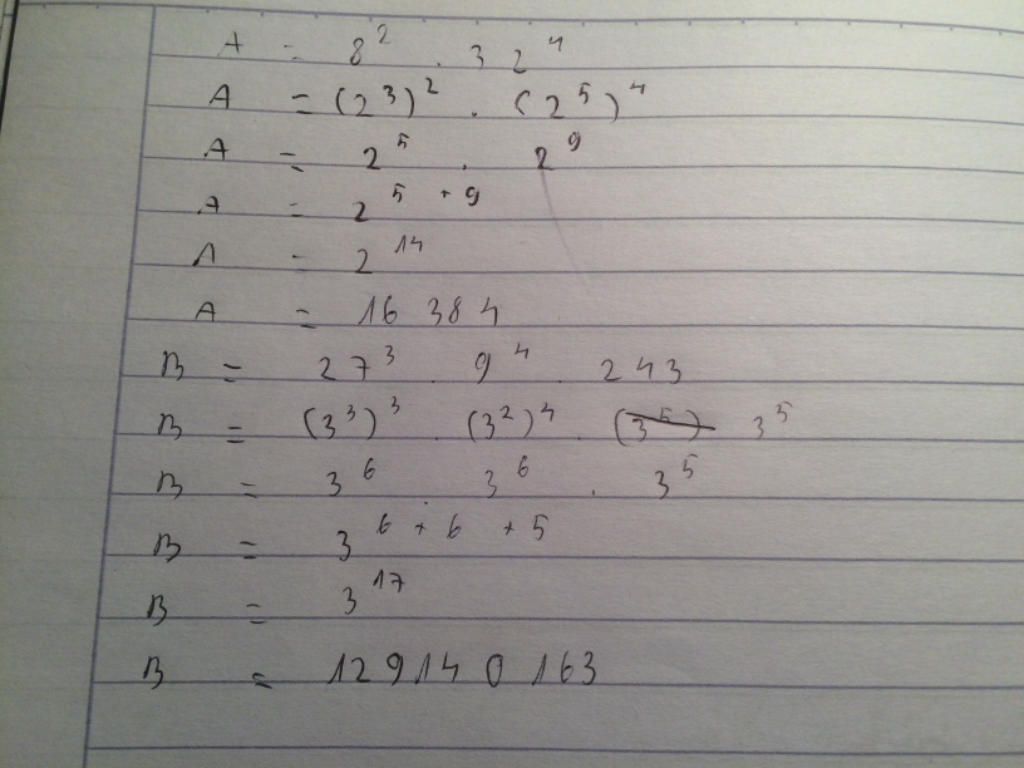 A = 8² . 32⁴
A = (2³)² . (2⁵)⁴
A = 2⁵ . 2⁹
A = 2⁵⁺⁹
A = 2¹⁴
A = 16 384
B = 27³ . 9⁴ . 243
B = (3³)³ . (3²)⁴ . (3⁵) 3⁵
B = 3⁶ . 3⁶ . 3⁵
B = 3⁶⁺⁶⁺⁵
B = 3¹⁷
B = 129140163